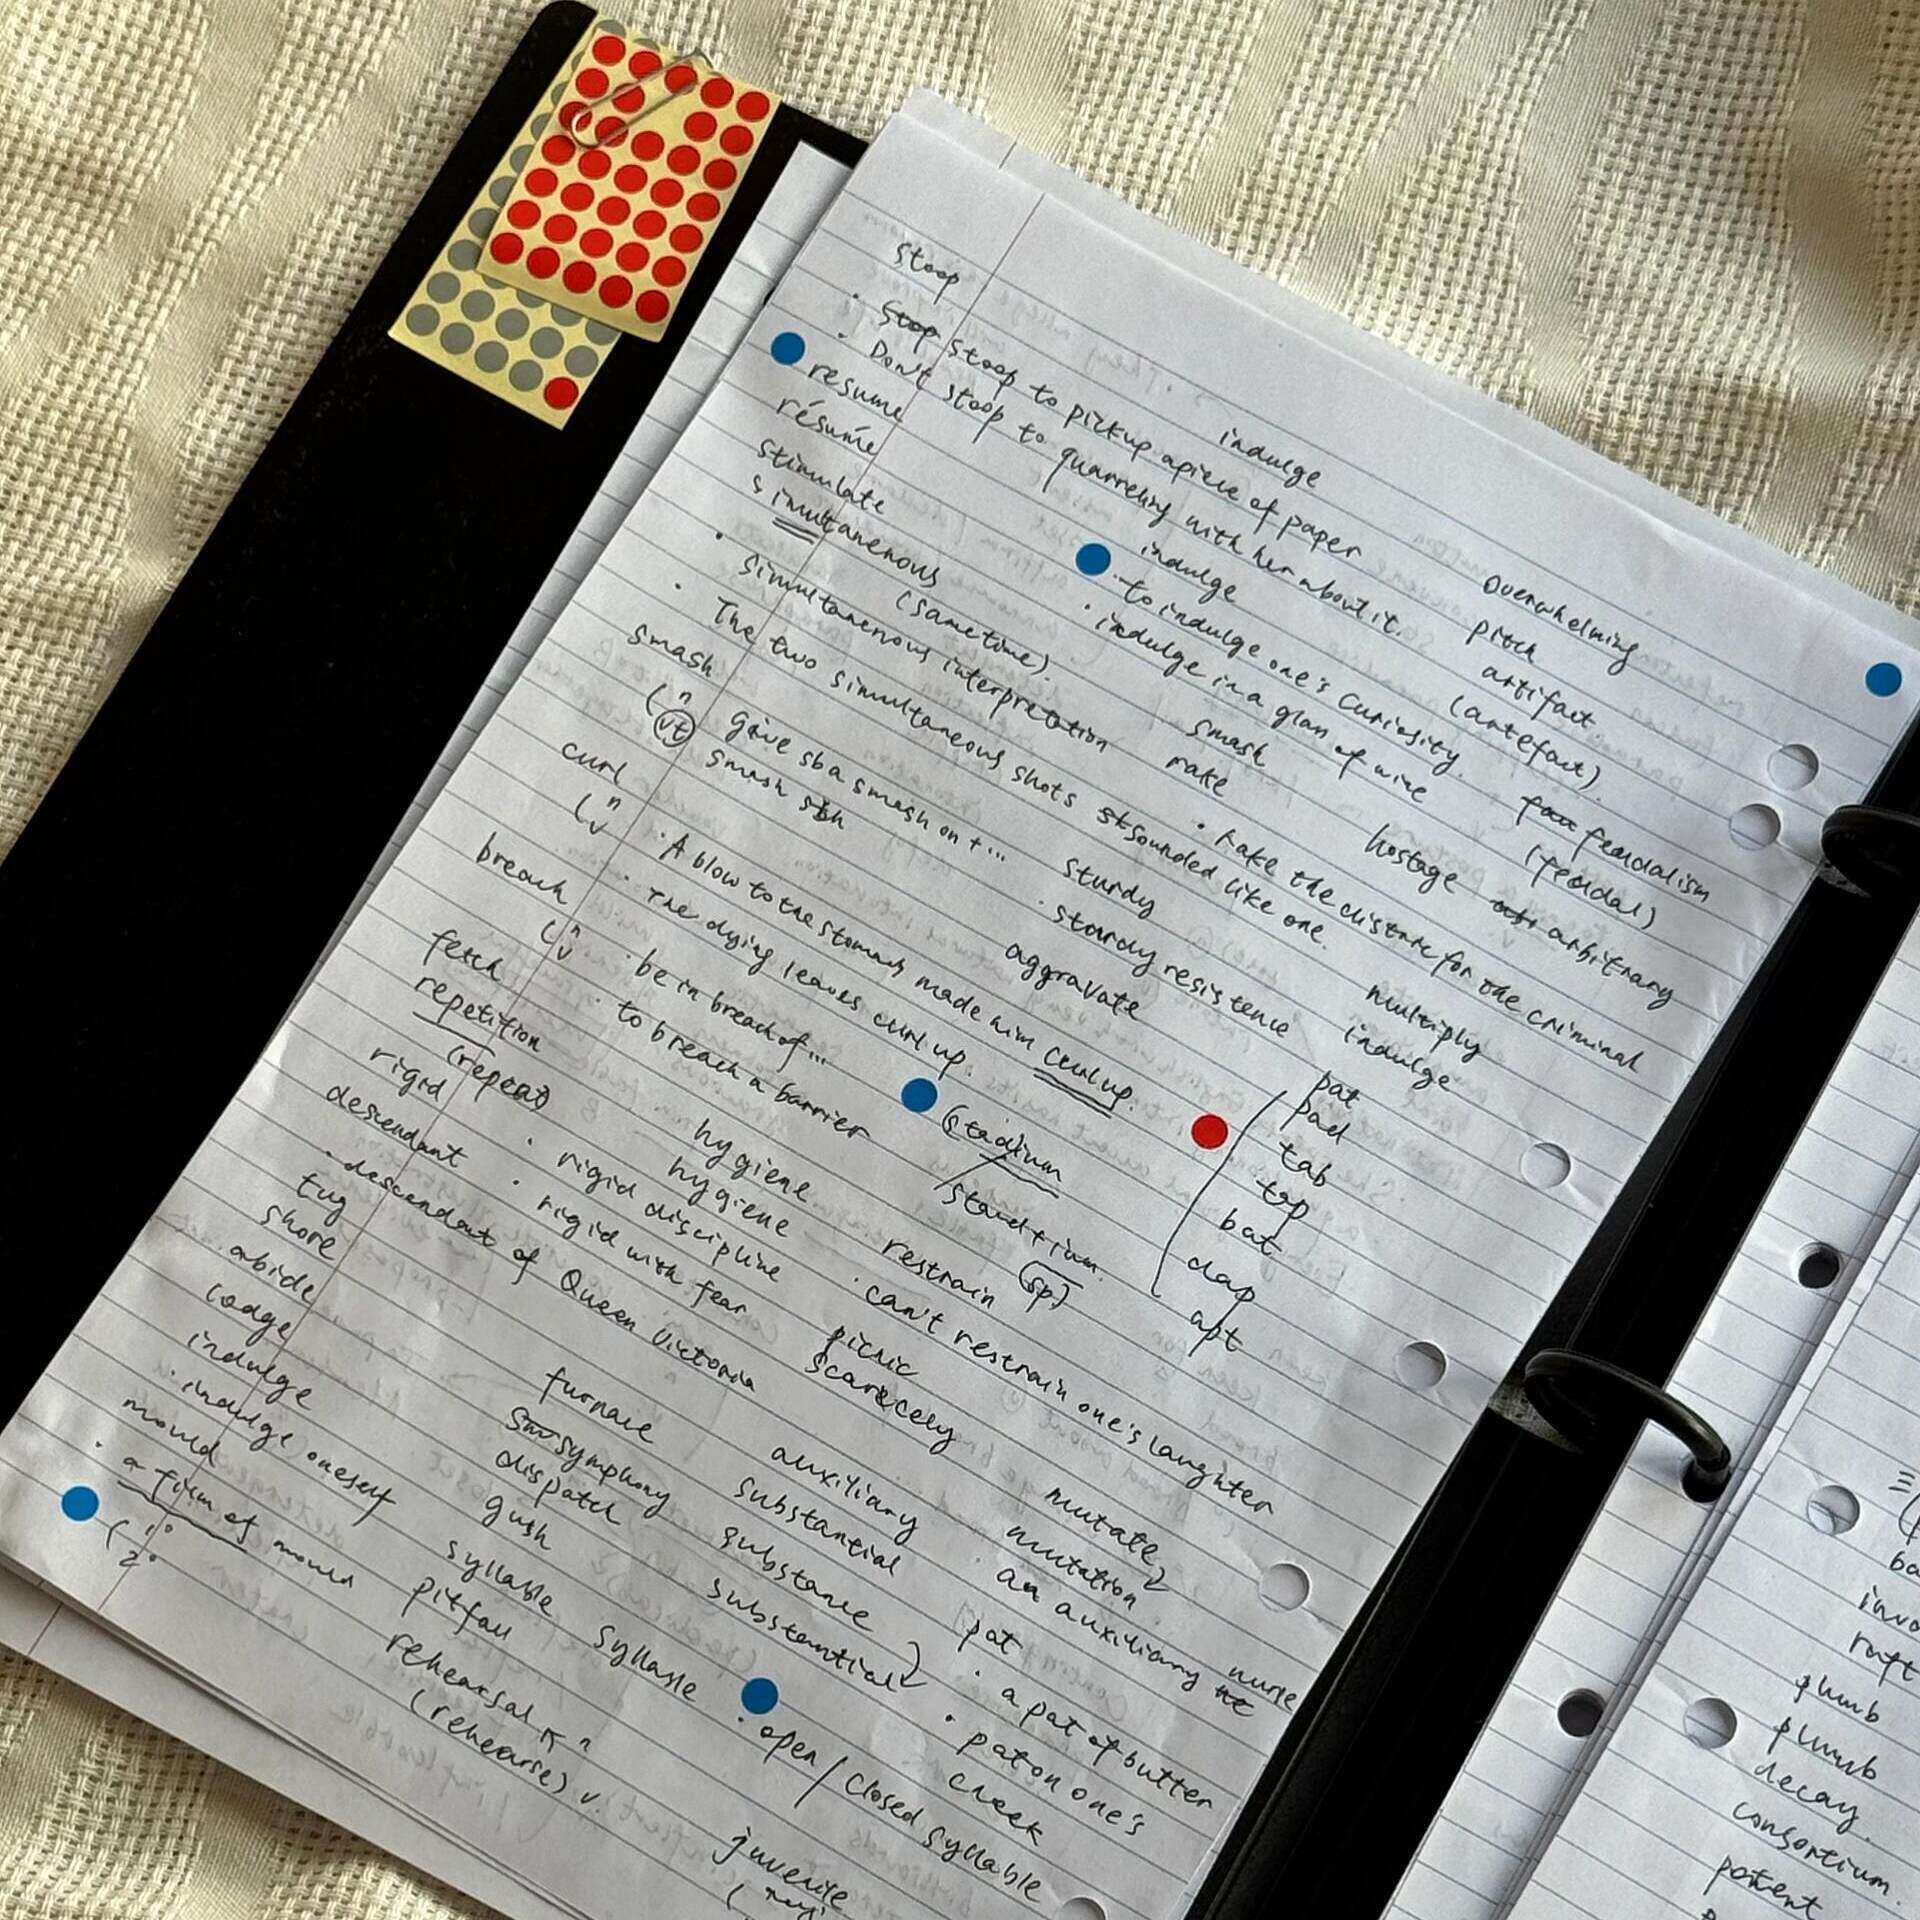 stoop
· Stop stoop to pickup apiece of paper
· Don't stoop to quarreling with her about it.
resume
résumé
stimulate
simultanenous
(sametime).
· simultanenous interpretation
· The two simultaneous shots st sounded like one.
smash
( n give sb a smash on + ...
vt smash sth
curl
( n · A blow to the stomach made him curl up.
v · The dying leaves curl up.
breach
( n · be in breach of...
v · to breach a barrier
fetch
repetition
(repeat)
rigid
· rigid discipline
· rigid with fear
descendant
· descendant of Queen Victoria
tug
shore
abide
lodge
indulge
· indulge oneself
mould
· a film of mould
( 1°
2°
indulge
indulge
· to indulge one's curiosity.
· indulge in a glass of wine
smash
rake
· rake the distance for the criminal
sturdy
· sturdy resistence
aggravate
stadium
stadtium.
(sp)
hygiene
hygiene
restrain
· can't restrain one's laughter
picnic
scarecely
furnace
symphony
dispatch
gush
syllable
pitfall
rehearsal n
(rehearse) v.
syllable
· open / closed syllable
juvenile
auxiliary
substantial
substance
substantial
mutate
mutation
an auxiliary nurse
pat
· a pat of butter
· pat on one's
cheek
overwhelming
pitch
artifact.
(artefact).
feudalism
(feudal)
hostage
arbitrary
multiply
indulge
pat
pad
tab
tap
bat
clap
apt
ba
inva
raft
plumb
plumb
decay.
consortium.
patent